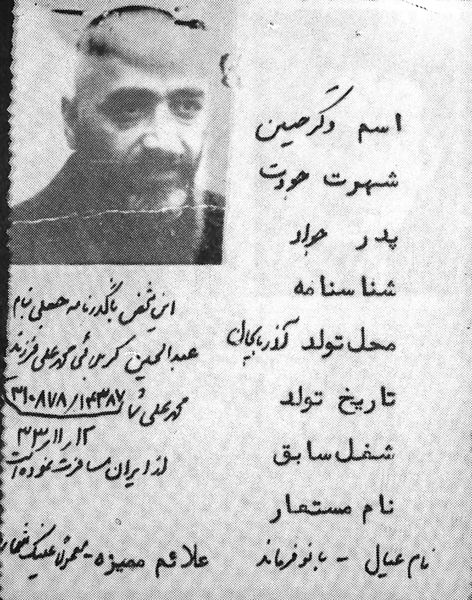 اسم دکتر حسین
شهرت جودت
پدر جواد
شناسنامه
محل تولد آذربایجان
تاریخ تولد
شغل سابق
نام مستعار
نام عیال - بانو فرماند
این شخص با گذرنامه جعلی بنام
عبدالحسین کربلائی محمدعلی فرزند
محمدعلی ش ۳۱۰۸۷۸/۱۴۳۸۷
۳۳/۱۱/۱۲
از ایران مسافرت نموده است
علائم ممیزه - معمولا عینک